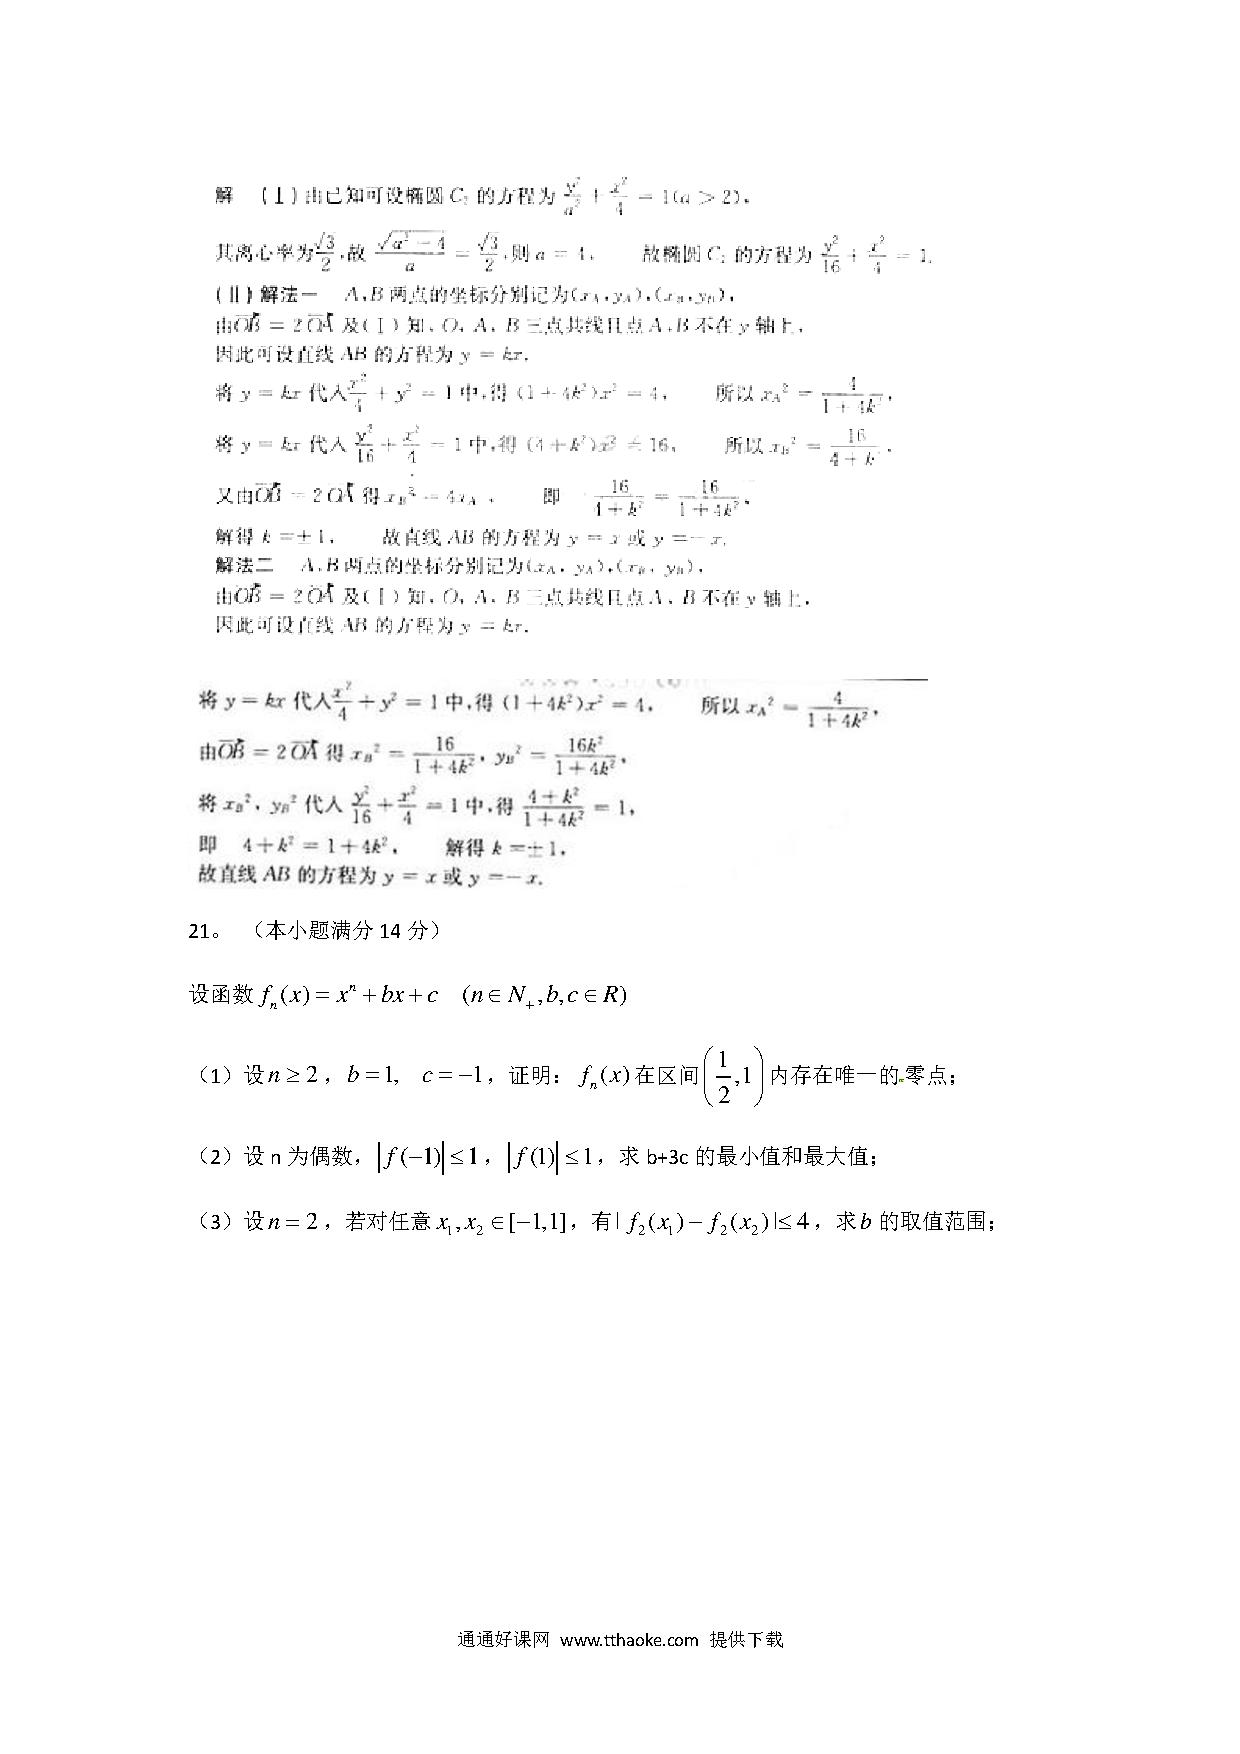 解 (Ⅰ)由已知可设椭圆 C₂ 的方程为 y²/a² + x²/4 = 1(a > 2),
其离心率为 √3/2,故 √(a²-4)/a = √3/2,则 a = 4, 故椭圆 C₂ 的方程为 y²/16 + x²/4 = 1.
(Ⅱ)解法一 A,B 两点的坐标分别记为(x_A,y_A),(x_B,y_B),
由OB→ = 2OA→ 及(Ⅰ)知,O,A,B 三点共线且点 A,B 不在 y 轴上,
因此可设直线 AB 的方程为 y = kx.
将 y = kx 代入 x²/4 + y² = 1 中,得 (1+4k²)x² = 4, 所以 x_A² = 4/(1+4k²),
将 y = kx 代入 y²/16 + x²/4 = 1 中,得 (4+k²)x² = 16, 所以 x_B² = 16/(4+k²).
又由OB→ = 2OA→ 得 x_B² = 4x_A², 即 16/(4+k²) = 16/(1+4k²),
解得 k =±1, 故直线 AB 的方程为 y = x 或 y =-x.
解法二 A,B 两点的坐标分别记为(x_A,y_A),(x_B,y_B),
由OB→ = 2OA→ 及(Ⅰ)知,O,A,B 三点共线且点 A,B 不在 y 轴上,
因此可设直线 AB 的方程为 y = kx.
将 y = kx 代入 x²/4 + y² = 1 中,得 (1+4k²)x² = 4, 所以 x_A² = 4/(1+4k²),
由OB→ = 2OA→ 得 x_B² = 16/(1+4k²), y_B² = 16k²/(1+4k²),
将 x_B², y_B² 代入 y²/16 + x²/4 = 1 中,得 (4+k²)/(1+4k²) = 1,
即 4+k² = 1+4k², 解得 k =±1,
故直线 AB 的方程为 y = x 或 y =-x.
21。 （本小题满分 14 分）
设函数 fₙ(x) = xⁿ + bx + c (n∈N₊,b,c∈R)
（1）设 n ≥ 2，b = 1, c = −1，证明：fₙ(x) 在区间 (1/2,1) 内存在唯一的零点；
（2）设 n 为偶数，|f(−1)| ≤ 1，|f(1)| ≤ 1，求 b+3c 的最小值和最大值；
（3）设 n = 2，若对任意 x₁,x₂ ∈[−1,1]，有| f₂(x₁) − f₂(x₂)|≤ 4，求 b 的取值范围；
通通好课网 www.tthaoke.com 提供下载